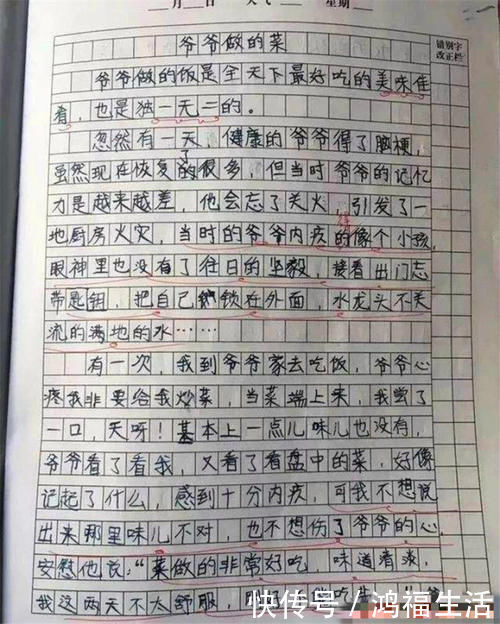 月 日 天气 星期
错别字
改正栏
爷爷做的菜
爷爷做的饭是全天下最好吃的美味佳
肴，也是独一无二的。
忽然有一天，健康的爷爷得了脑梗，
虽然现在恢复了的很多，但当时爷爷的记忆
力是越来越差，他会忘了关火，引发了一
地厨房火灾，当时的爷爷内疚的像个小孩，
眼神里也没有了往日的坚毅，接着出门忘
带匙钥，把自己锁在外面，水龙头不关
流的满地的水……
有一次，我到爷爷家去吃饭，爷爷心
疼我非要给我炒菜，当菜端上来，我尝了
一口，天呀！基本上一点儿味儿也没有，
爷爷看了看我，又看了看盘中的菜，好像
记起了什么，感到十分内疚，可我不想说
出来那里味儿不对，也不想伤了爷爷的心，
安慰他说：“菜做的非常好吃，味道看淡，
我这两天不太舒服，
快传号/鸿福生活